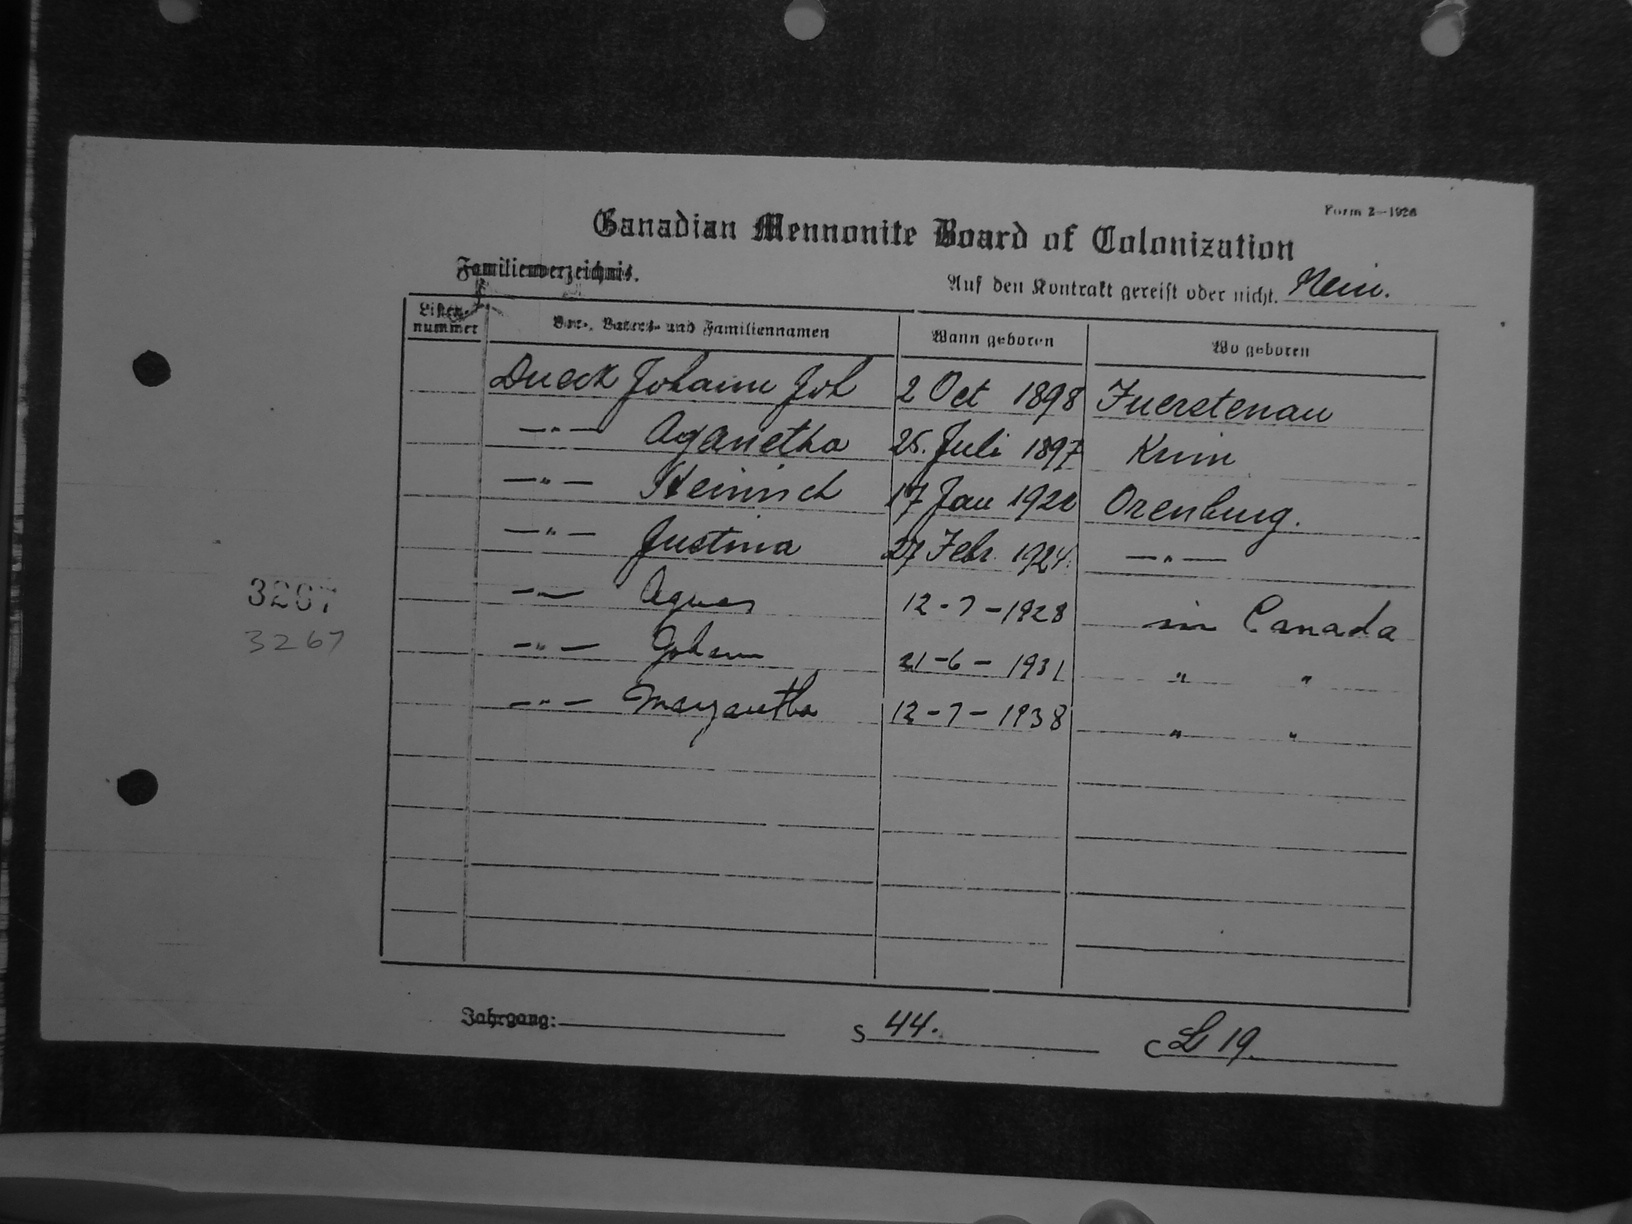 Form 2—1926
Canadian Mennonite Board of Colonization
Familienverzeichnis.
Auf den Kontrakt gereist oder nicht. Nein.
Listen-
nummer
Vor-, Vaters- und Familiennamen
Wann geboren
Wo geboren
Dueck Johann Joh 2 Oct 1898 Fuerstenau
—"— Aganetha 25. Juli 1897 Krim
—"— Heinrich 17 Jan 1922 Orenburg.
—"— Justina 27 Febr. 1924. —"—
—"— Agnes 12-7-1928 in Canada
—"— Johann 21-6-1931 " "
—"— Margaretha 12-7-1938 " "
3267
3267
Jahrgang: S 44. C L 19.